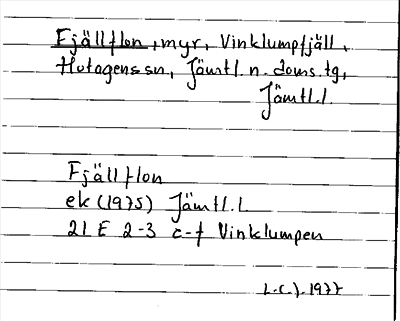 Fjällflon, myr, Vinklumpfjäll,
Hotagens sn, Jämtl. n. doms. tg,
Jämtl.l.
Fjällflon
ek (1975) Jämtl.l
21 E 2-3 c-f Vinklumpen
L.C.J. 1977